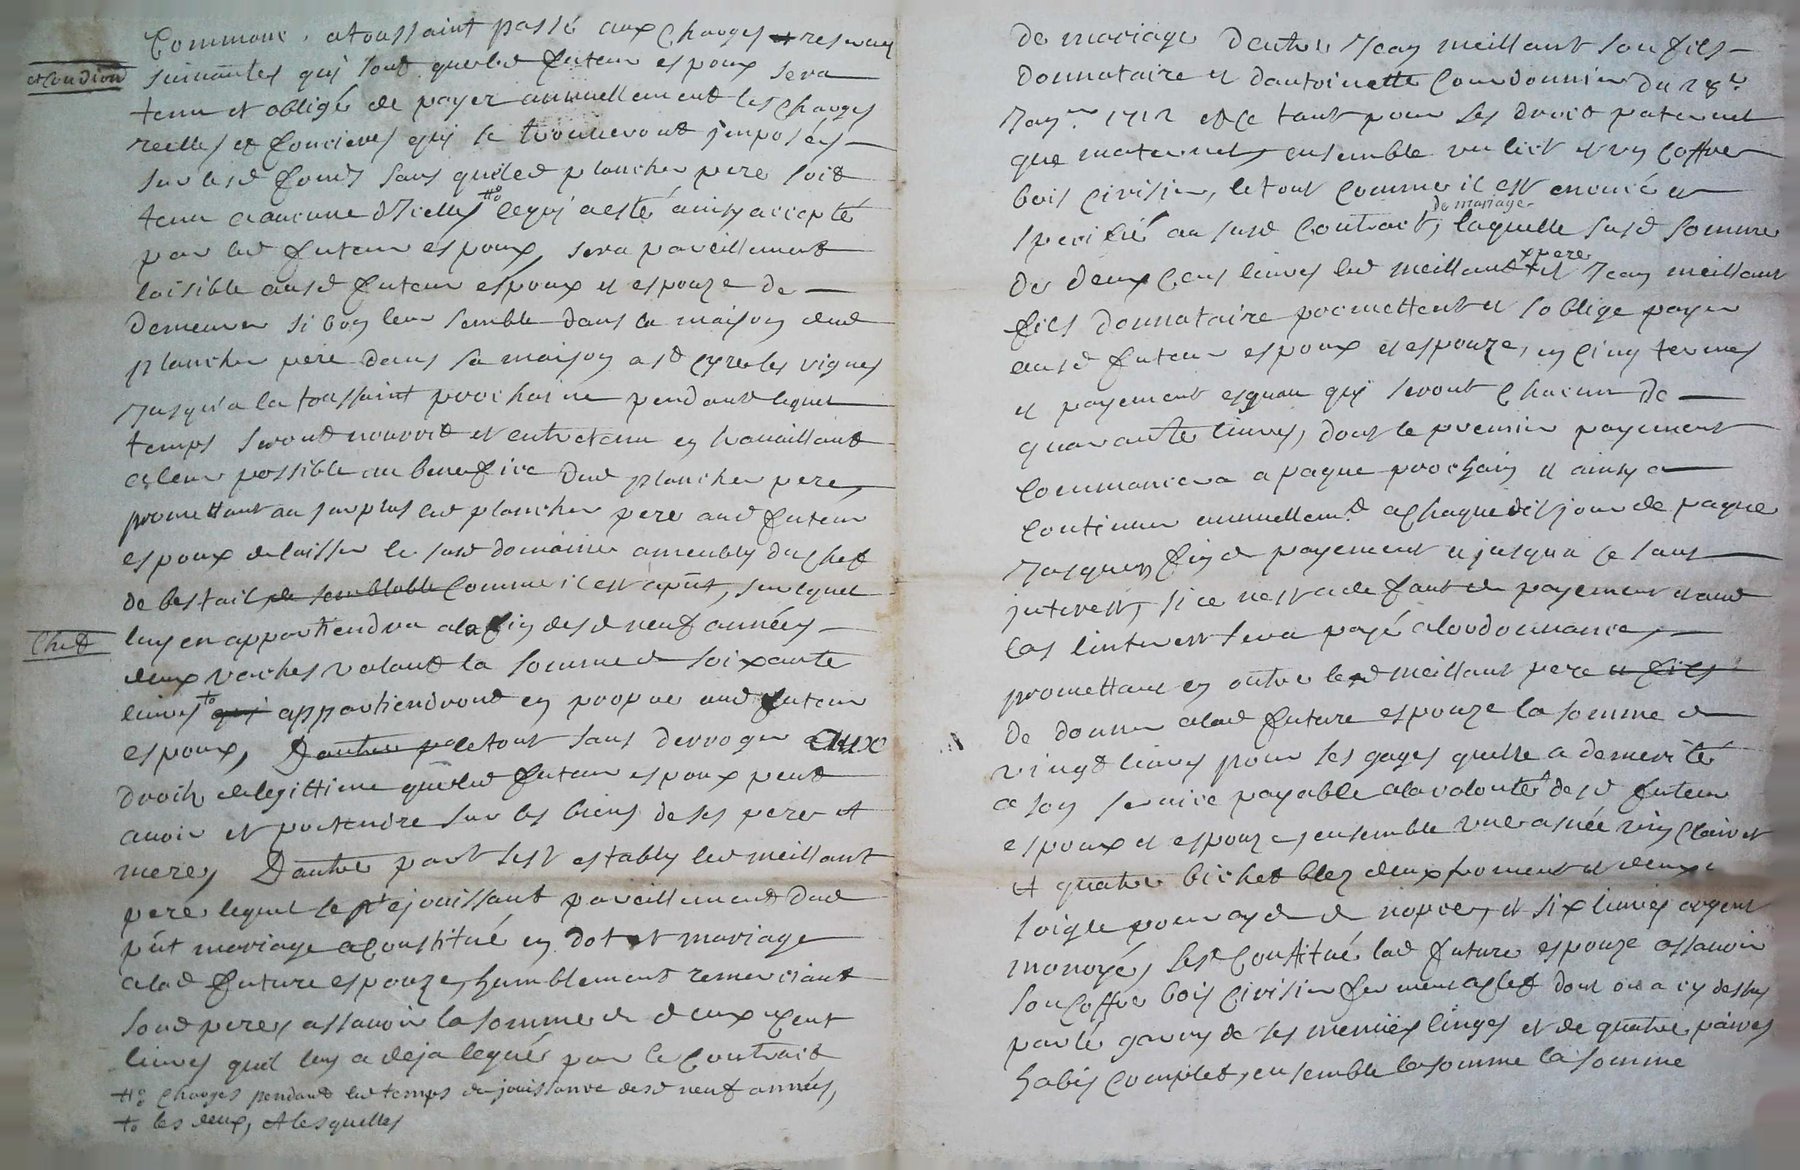 Commune, a toussaint passé aux charges et reserves
et condition
suivantes qui sont que led futeur espoux sera
tenu et obligé de payer annuellement les charges
reelles et foncieres qui se trouveront imposées
sur lesd fonds sans que led plancher pere soit
tenu a aucune d'icelles #o ce qui a esté ainsy accepté
par led futeur espoux, sera pareillement
loisible ausd futeur espoux et espouze de
demeurer si bon leur semble dans la maison dud
plancher pere dans sa maison a st cyr les vignes
jusqu'a la toussaint prochaine pendant lequel
temps seront nourrit et entretenu en travaillant
a leur possible au benefice dud plancher pere,
promettant au surplus led plancher pere aud futeur
espoux de laisser le susd domaine ameubly du chet
de bestail de semblable comme il est a pnt, surlequel
Chet
luy en appartiendra a la fin desd neuf années
deux vaches valant la somme de soixante
livres +o qui appartiendront en propre aud futeur
espoux, D'autre p le tout sans derroger aux
droits de legittime que led futeur espoux peut
avoir et pretendre sur les biens de ses pere et
mere, D'autre part s'est estably led meillant
pere lequel se rejouissant pareillement dud
pnt mariage a constitué en dot et mariage
a lad future espouze, humblement remerciant
sond pere, assavoir la somme de deux cent
livres quil luy a deja legués par le contrait
#o charges pendant led temps de jouissance desd neuf années,
+o les deux, et lesquelles
de mariage d'entre Jean meillant son fils
donnataire et d'antoinette Courdonnier du 28e
Janr 1712 et ce tant pour ses droit paternel
que maternel, ensemble un lict et un coffre
bois civisier, le tout comme il est enoncé et
specifié au susd contrait, de mariage laquelle susd somme
de deux cens livres led meillant + x pere et Jean meillant
fils donnataire promettent et s'oblige payer
ausd futeur espoux et espouze, en cinq termes
et payement esgaux qui seront chacun de
quarante livres, dont le premier payement
commancera a paque prochain et ainsy a
continuer annuellemt a chaque dit jour de paque
jusques fin de payement et jusqu'a ce sans
interest, si ce n'est a defaut de payement et aud
cas l'interest sera payé a l'ordonnance,
promettant en outre led meillant pere et fils
de donner a lad future espouze la somme de
vingt livres pour ses gages quelle a demerité
a son service payable a la volonté desd futeur
espoux et espouze, ensemble une asnée vin clairet
et quatre bichet blez deux froment et deux
soigle pour ayde de nopce, et six livres argent
monoyé, s'est constitué lad future espouze assavoir
son coffre bois civisier fermen a clef dont on a cy dessus
parlé garny de ses menües linges et de quatre paires
habis complet, ensemble la somme la somme